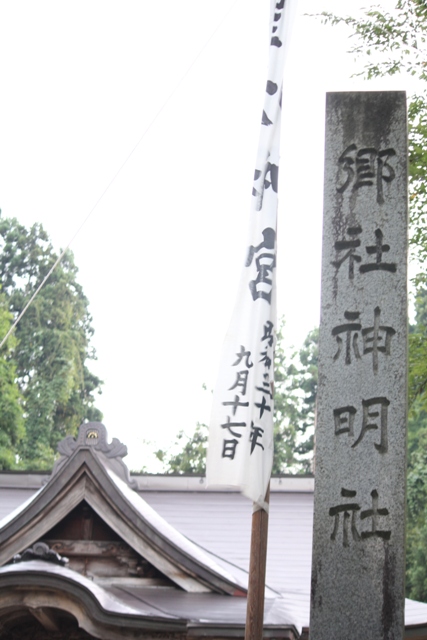 郷社神明社
宮
昭和三十年
九月十七日